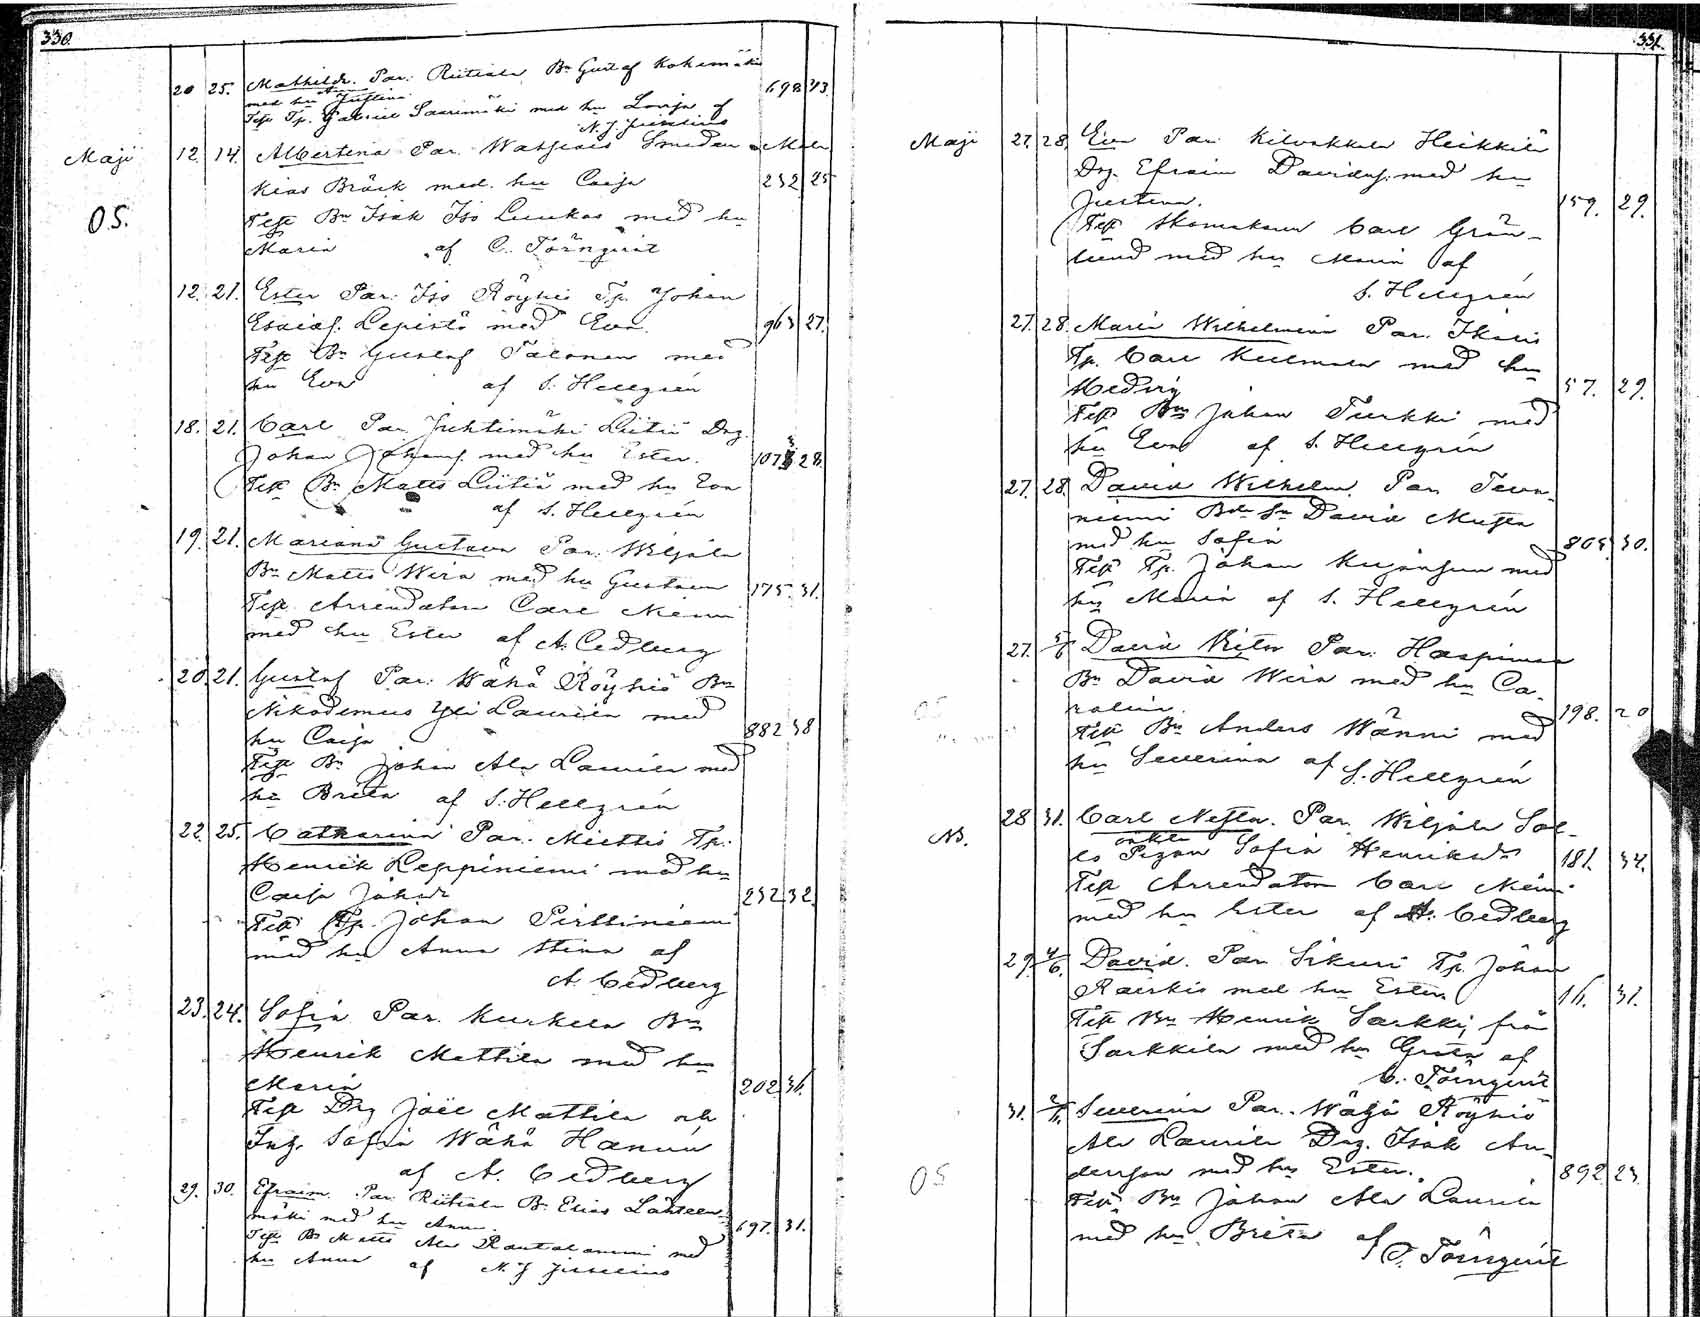 330.
20 25. Mathilda. Par. Rutiala Bn Gustaf Kohamäki 698 43.
med hu Justina
Test. Tp. Gabriel Saarimäki med hu Lovisa af
N. J. Juselius
Maji 12. 14. Albertina Par. Smeden Mala-
kias Bräck med hu Caisa 232 25
O S.
Test Bn Isak Iso Luukas med hu
Maria af C. Törnqvist
12. 21. Ester Par. Iso Röyhiö Tp. Johan
Esaiass. Lepistö med Eva. 963 27.
Test Bn Gustaf Talonen med
hu Eva af S. Hellgrén
18. 21. Carl Par. Juhtimäki Liitiä Drg.
Johan Johanss. med hu Ester. 28.
Test Bn Matts Liitiä med hu Eva
af S. Hellgrén
19. 21. Mariana Gustava Par. Wiljala
Bn Matts Wira med hu Gustava 175. 31.
Test Arrendatorn Carl Niemi
med hu Ester af A. Cedberg
20. 21. Gustaf Par. Wähä Röyhiö Bn
Nikodemus Yli Laurila med
hu Caisa 882 38
Test Bn Johan Ala Laurila med
hu Breta af S. Hellgrén
22. 25. Catharina Par. Miettis Tp.
Henrik Leppiniemi med hu
Caisa Johsdr 232 32.
Test Tp. Johan Pirttiniemi
med hu Anna Stina af
A. Cedberg
23. 24. Sofia Par. Kurkela Bn
Henrik Mattila med hu
Maria 202 36.
Test Drg Joel Mattila och
Inh. Sofia Wähä Hannu
af A. Cedberg
29. 30. Efraim. Par. Rutiala Bn Elias Lauteen-
mäki med hu Anna. 697. 31.
Test Bn Matts Ala Rautalammi med
hu Anna af N. J. Juselius
331.
Maji 27. 28. Eva Par. Kilvakkala Heikkilä
Drg. Efraim Davidss. med hu
Justina. 159. 29.
Test Skomakaren Carl Grön-
lund med hu Maria af
S. Hellgrén
27. 28. Maria Wilhelmina Par. Ikaris
Tp. Carl Kulmala med hu
Hedvig 57. 29.
Test Bn Johan Turkki med
hu Eva af S. Hellgrén
27. 28. David Wilhelm. Par. Teva-
niemi Bde Sn David Musta
med hu Sofia 30.
Test Tp. Johan med
hu Maria af S. Hellgrén
27. 5/6 David Victor Par. Haapimaa
Bn David Wira med hu Ca-
rolina. 198. 20
O S
Test Bn Anders Wänni med
hu Severina af S. Hellgrén
28 31. Carl Nestor. Par. Wiljala Sol-
NB.
es enkla Pigan Sofia Henriksdr 181. 34.
Test Arrendatorn Carl Niemi
med hu Ester af A. Cedberg
29. 4/6. David. Par. Sikuri Tp. Johan
Raiskio med hu Ester. 16. 31.
Test Bn Henrik Sarkki från
Sarkkila med hu Greta af
C. Törnqvist
31. Severina Par. Wähä Röyhiö
Ala Laurila Drg. Isak An-
dersson med hu Ester. 892 23
O S
Test Bn Johan Ala Laurila
med hu Breta af
C. Törnqvist